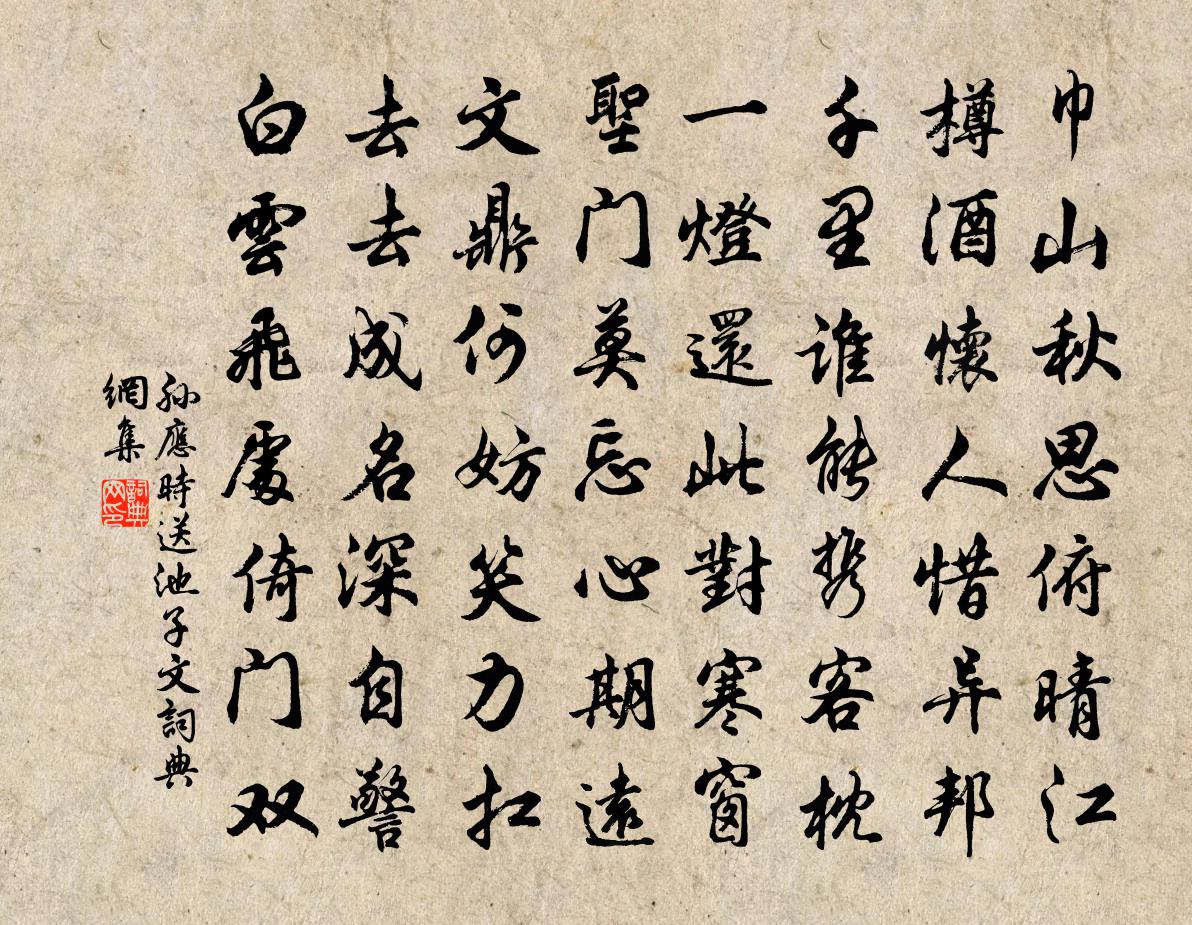 巾山秋思俯晴江
樽酒懷人惜异邦
千里谁能携客枕
一燈還此對寒窗
聖门莫忘心期遠
文鼎何妨笑力扛
去去成名深自警
白雲飛處倚门双
孙應時送池子文詞典
網集
詞典
网印